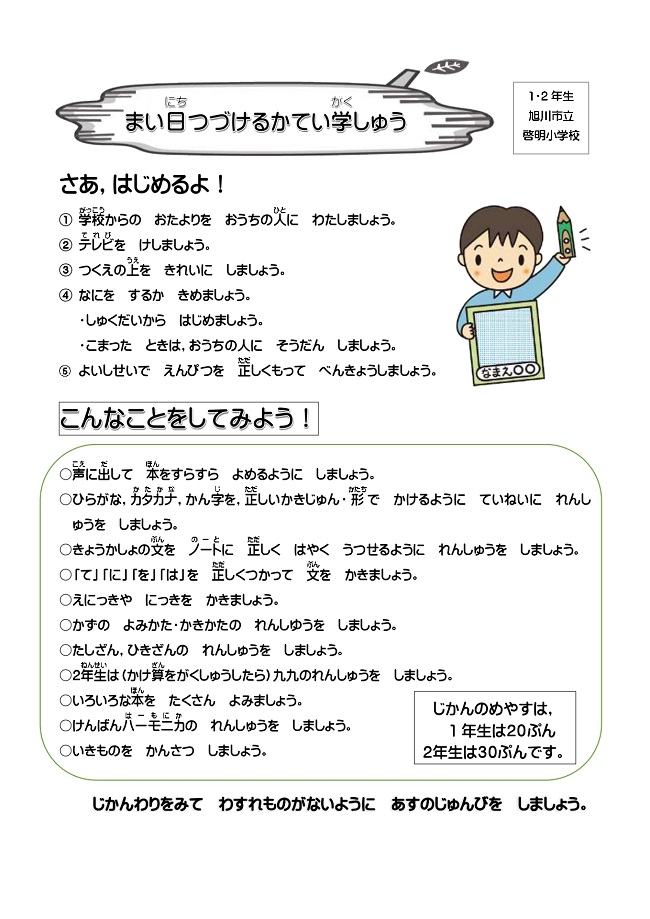 まい日つづけるかてい学しゅう
1・2年生
旭川市立
啓明小学校
さあ,はじめるよ！
① 学校からの　おたよりを　おうちの人に　わたしましょう。
② テレビを　けしましょう。
③ つくえの上を　きれいに　しましょう。
④ なにを　するか　きめましょう。
・しゅくだいから　はじめましょう。
・こまった　ときは,おうちの人に　そうだん　しましょう。
⑤ よいしせいで　えんぴつを　正しくもって　べんきょうしましょう。
なまえ○○
こんなことをしてみよう！
○声に出して　本をすらすら　よめるように　しましょう。
○ひらがな,カタカナ,かん字を,正しいかきじゅん・形で　かけるように　ていねいに　れんし
ゅうを　しましょう。
○きょうかしょの文を　ノートに　正しく　はやく　うつせるように　れんしゅうを　しましょう。
○「て」「に」「を」「は」を　正しくつかって　文を　かきましょう。
○えにっきや　にっきを　かきましょう。
○かずの　よみかた・かきかたの　れんしゆうを　しましょう。
○たしざん,ひきざんの　れんしゅうを　しましょう。
○2年生は（かけ算をがくしゅうしたら）九九のれんしゅうを　しましょう。
○いろいろな本を　たくさん　よみましょう。
○けんばんハーモニカの　れんしゅうを　しましょう。
○いきものを　かんさつ　しましょう。
じかんのめやすは,
1年生は20ぷん
2年生は30ぷんです。
じかんわりをみて　わすれものがないように　あすのじゅんびを　しましょう。